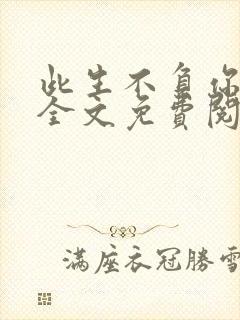 此生不负你
全文免費閱
满座衣冠勝雪